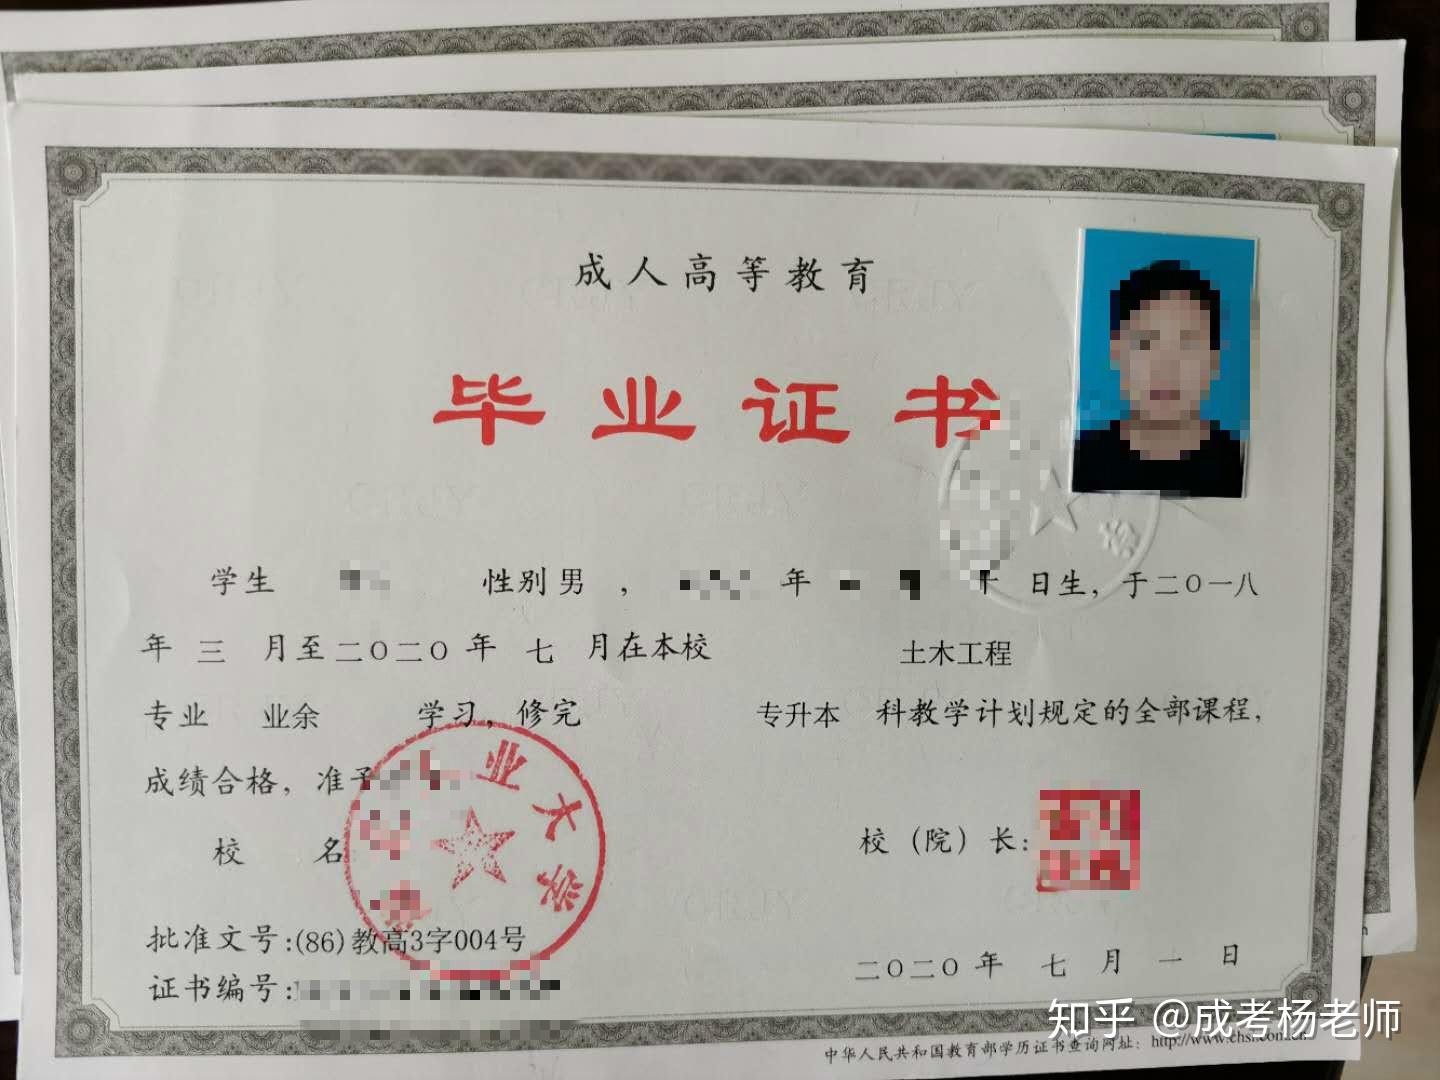 成人高等教育
毕业证书
学生 性别男 , 年 日生，于二〇一八
年 三 月至二〇二〇年 七 月在本校 土木工程
专业 业余 学习，修完 专升本 科教学计划规定的全部课程，
成绩合格，准予
业大学
校 名 校（院）长:
批准文号:(86)教高3字004号
证书编号:
二〇二〇年 七 月 一 日
知乎 @成考杨老师
中华人民共和国教育部学历证书查询网址: http://www.chsi.com.cn